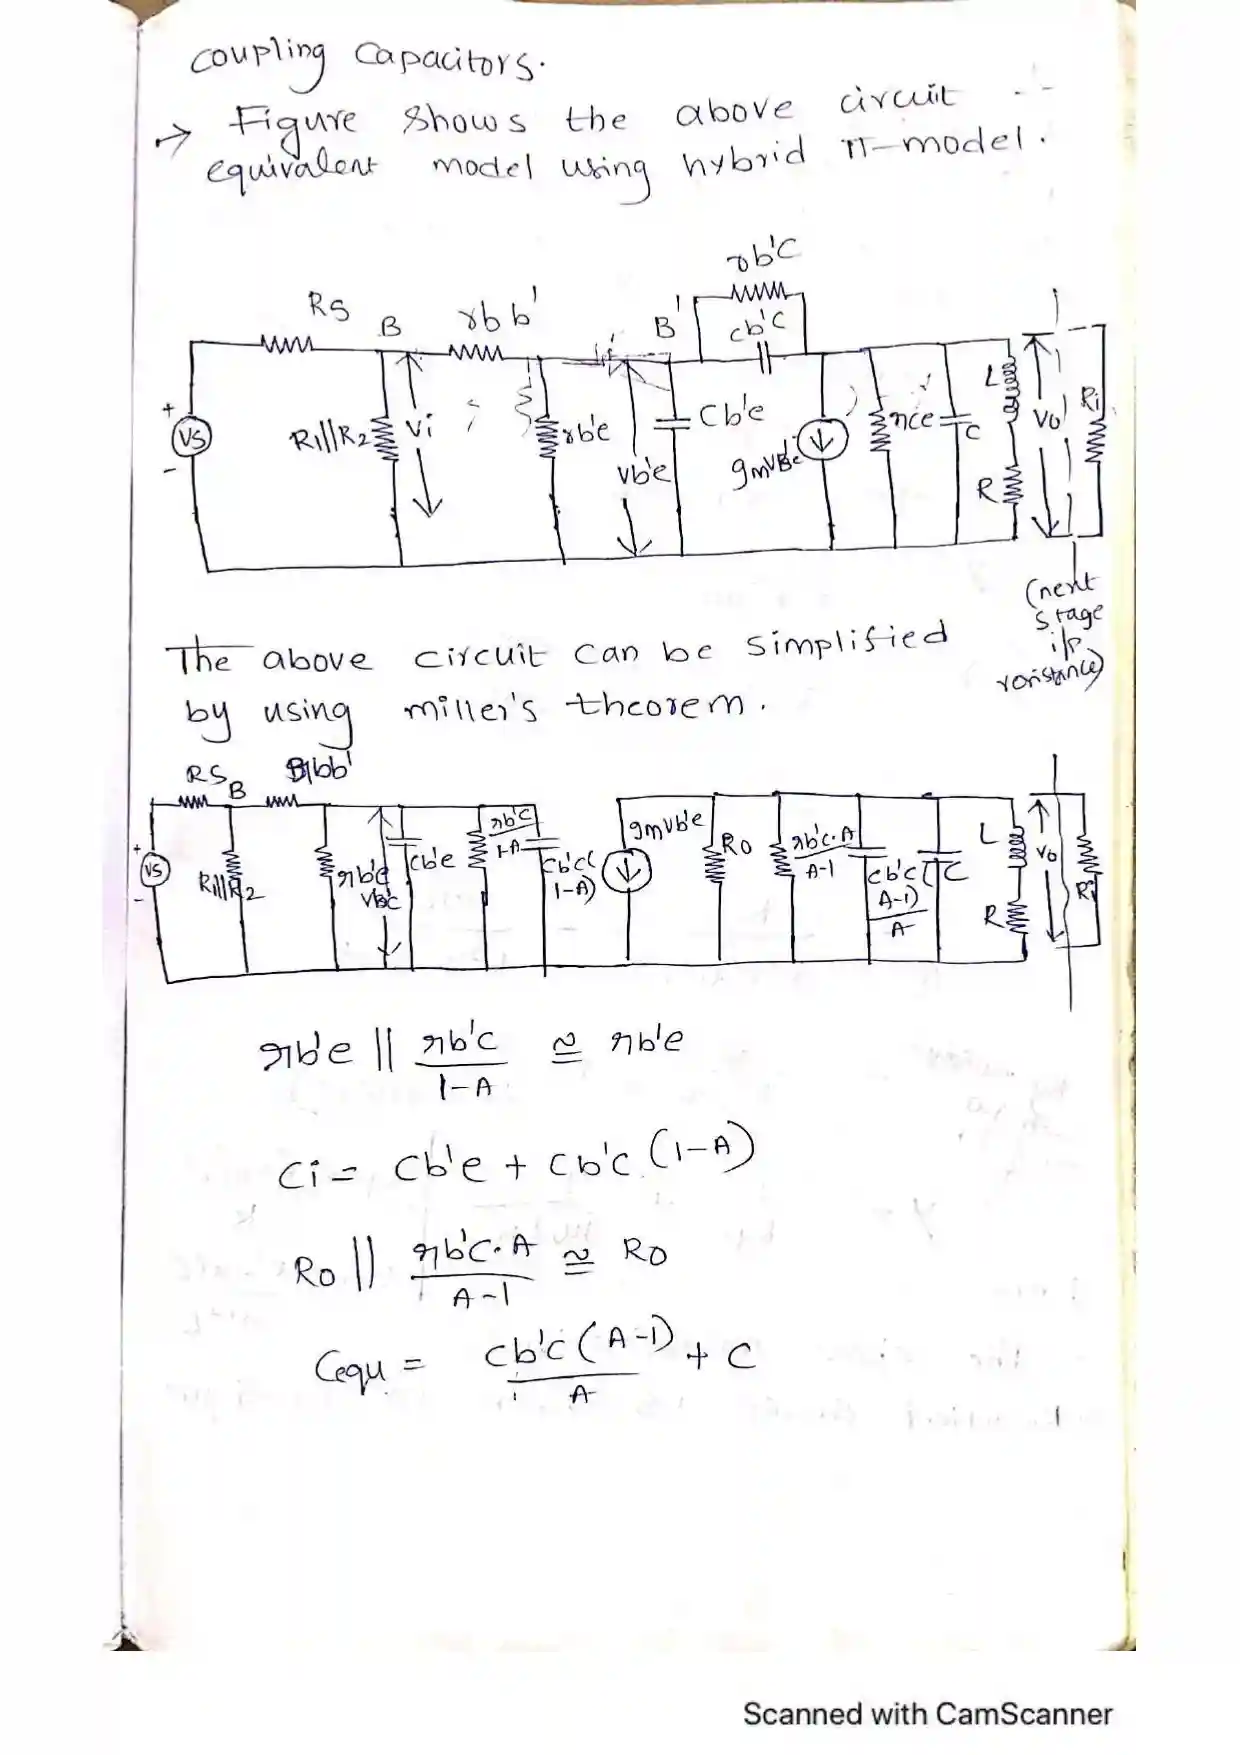 coupling capacitors.
→ Figure shows the above circuit
equivalent model using hybrid π-model.
rb'c
Rs B rbb' B' cb'c
+ Vs - R1||R2 Vi rb'e Vb'e Cb'e gmVb'e rce C L R Vo Ri
(next
stage
i/p
resistance)
The above circuit can be simplified
by using miller's theorem.
Rs B rbb'
+ Vs - R1||R2 rb'e Vb'c Cb'e rb'c/1-A Cb'c(1-A) gmVb'e Ro rb'c.A/A-1 Cb'c(A-1)/A C L R Vo Ri
rb'e || rb'c/1-A ≅ rb'e
Ci = Cb'e + Cb'c (1-A)
Ro || rb'c.A/A-1 ≅ Ro
Cequ = Cb'c (A-1)/A + C
Scanned with CamScanner